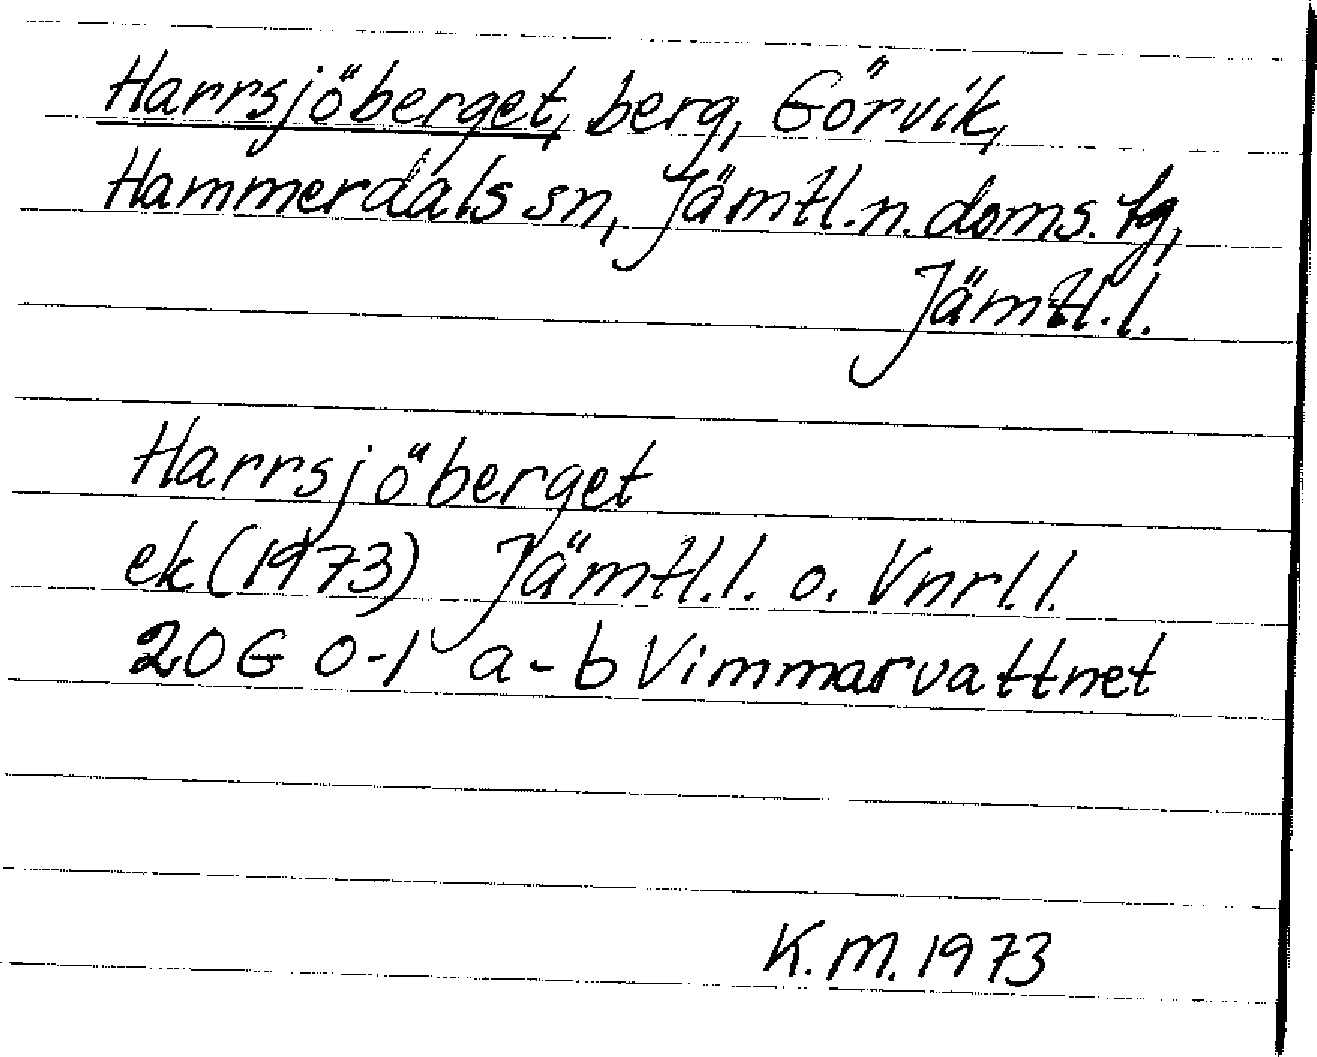 Harrsjöberget, berg, Görvik,
Hammerdals sn, Jämtl.n.doms.tg,
Jämtl.l.
Harrsjöberget
ek (1973) Jämtl.l. o. Vnrl.l.
20G 0-1 a-b Vimmarvattnet
K.M. 1973